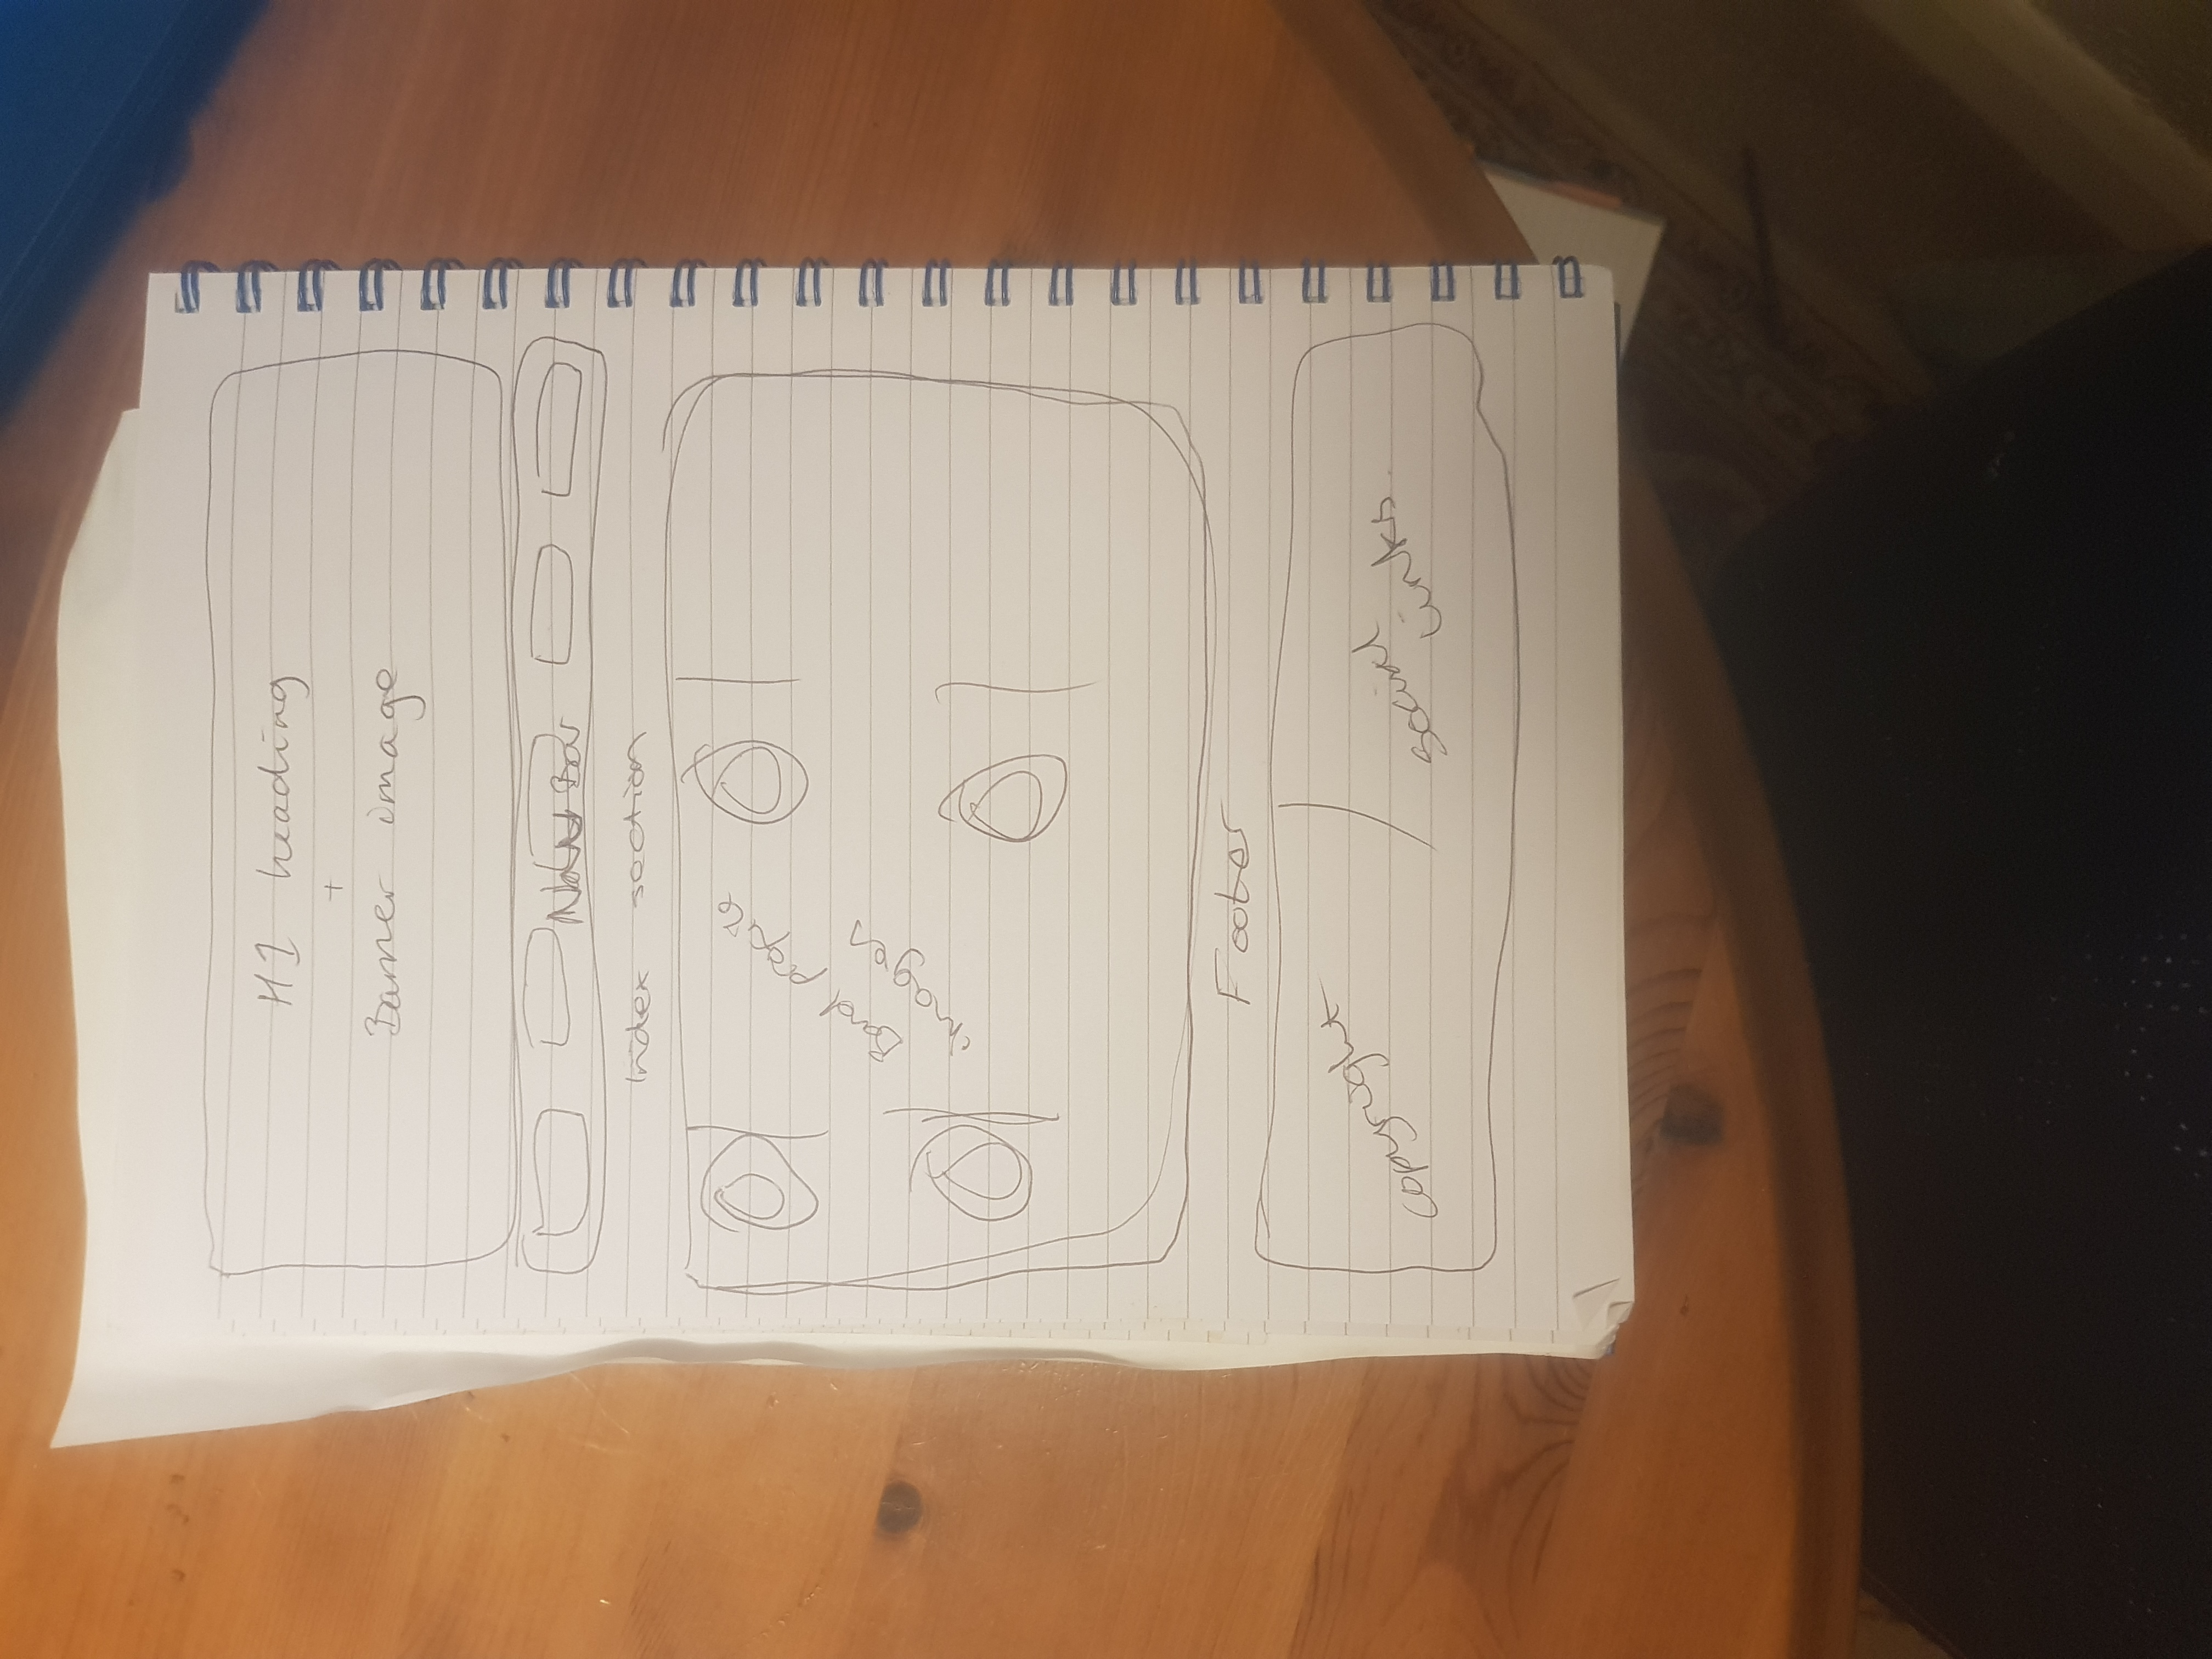 H1 heading
+
Banner image
Nav Bar
Index section
Band profile
images
Footer
copyright
social
links